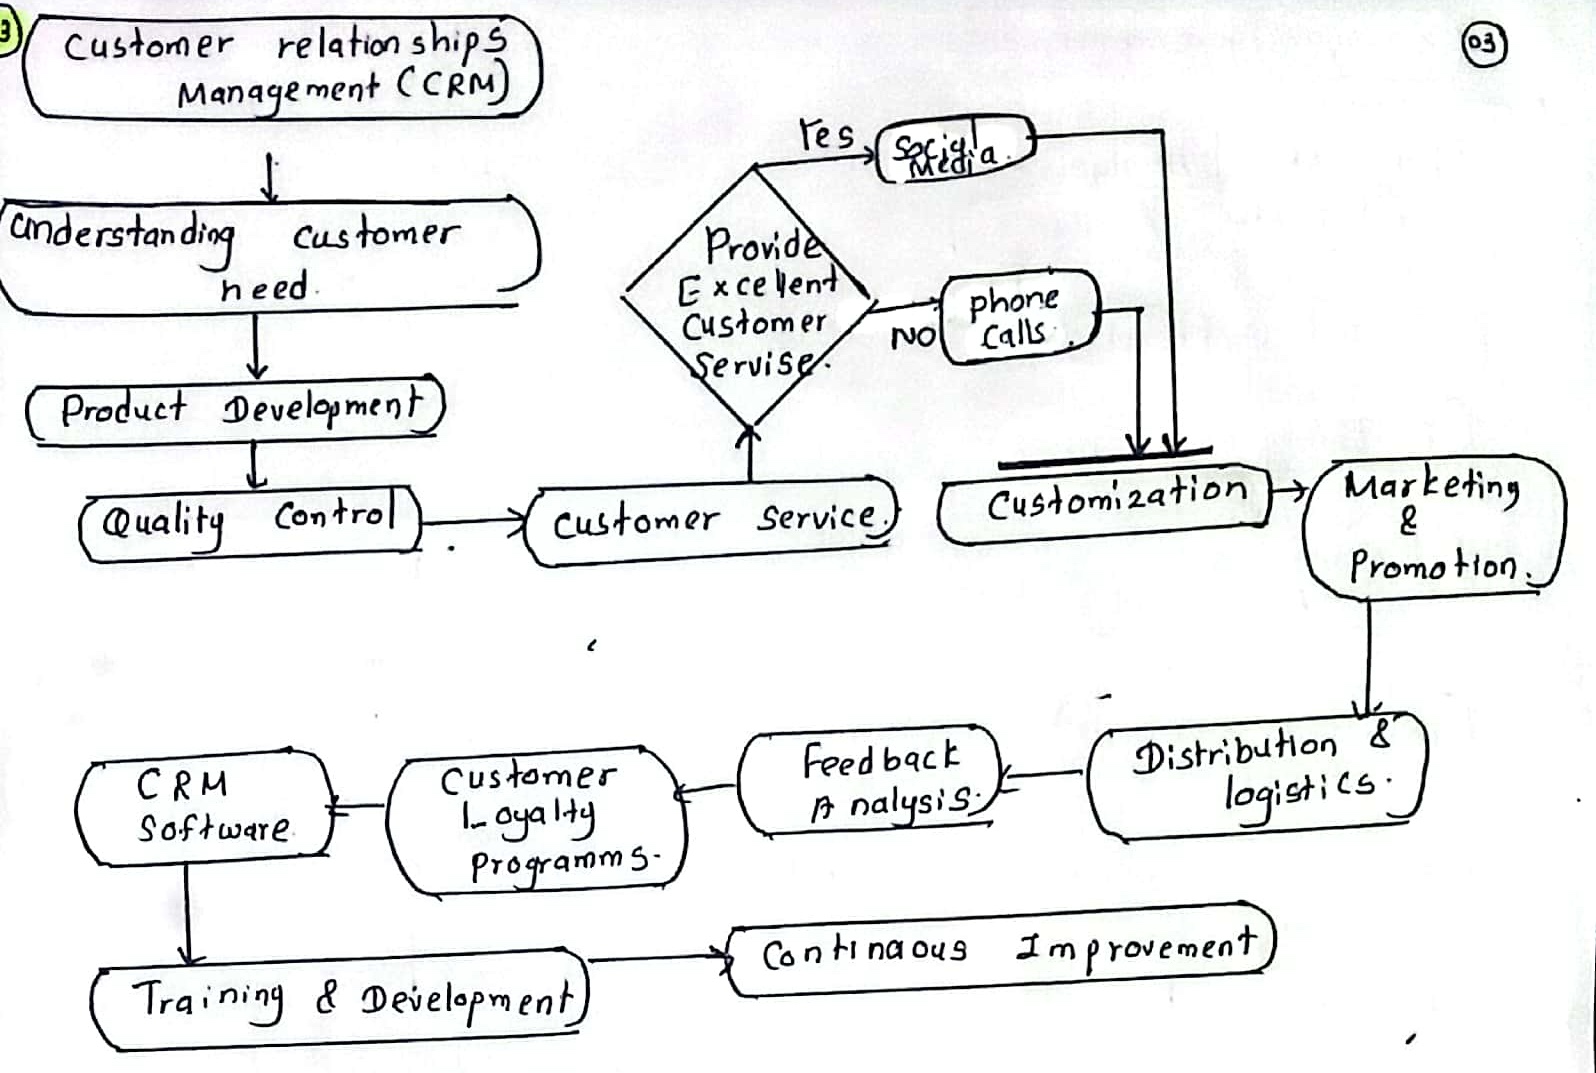 3
03
Customer relationships
Management (CRM)
Understanding customer
need.
Product Development
Quality Control
Customer Service.
Provide
Excellent
Customer
Servise.
Yes
Social
Media.
NO
phone
Calls.
Customization
Marketing
&
Promotion.
Distribution &
logistics.
Feedback
Analysis.
Customer
Loyalty
Programms.
CRM
Software.
Training & Development
Continaous Improvement